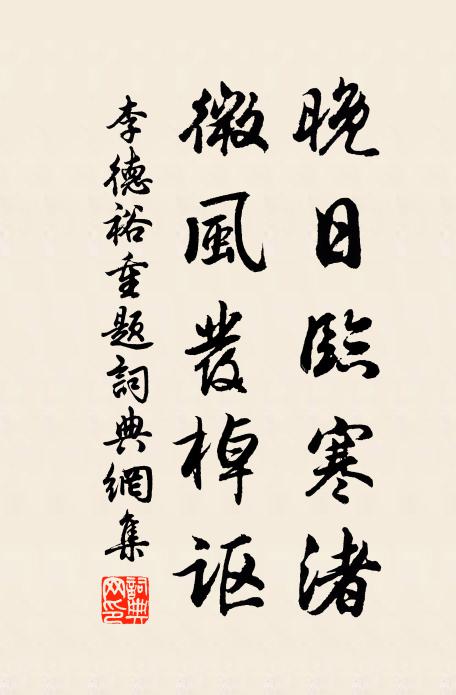 晚日臨寒渚
微風發棹謳
李德裕重題詞典網集
詞典網印